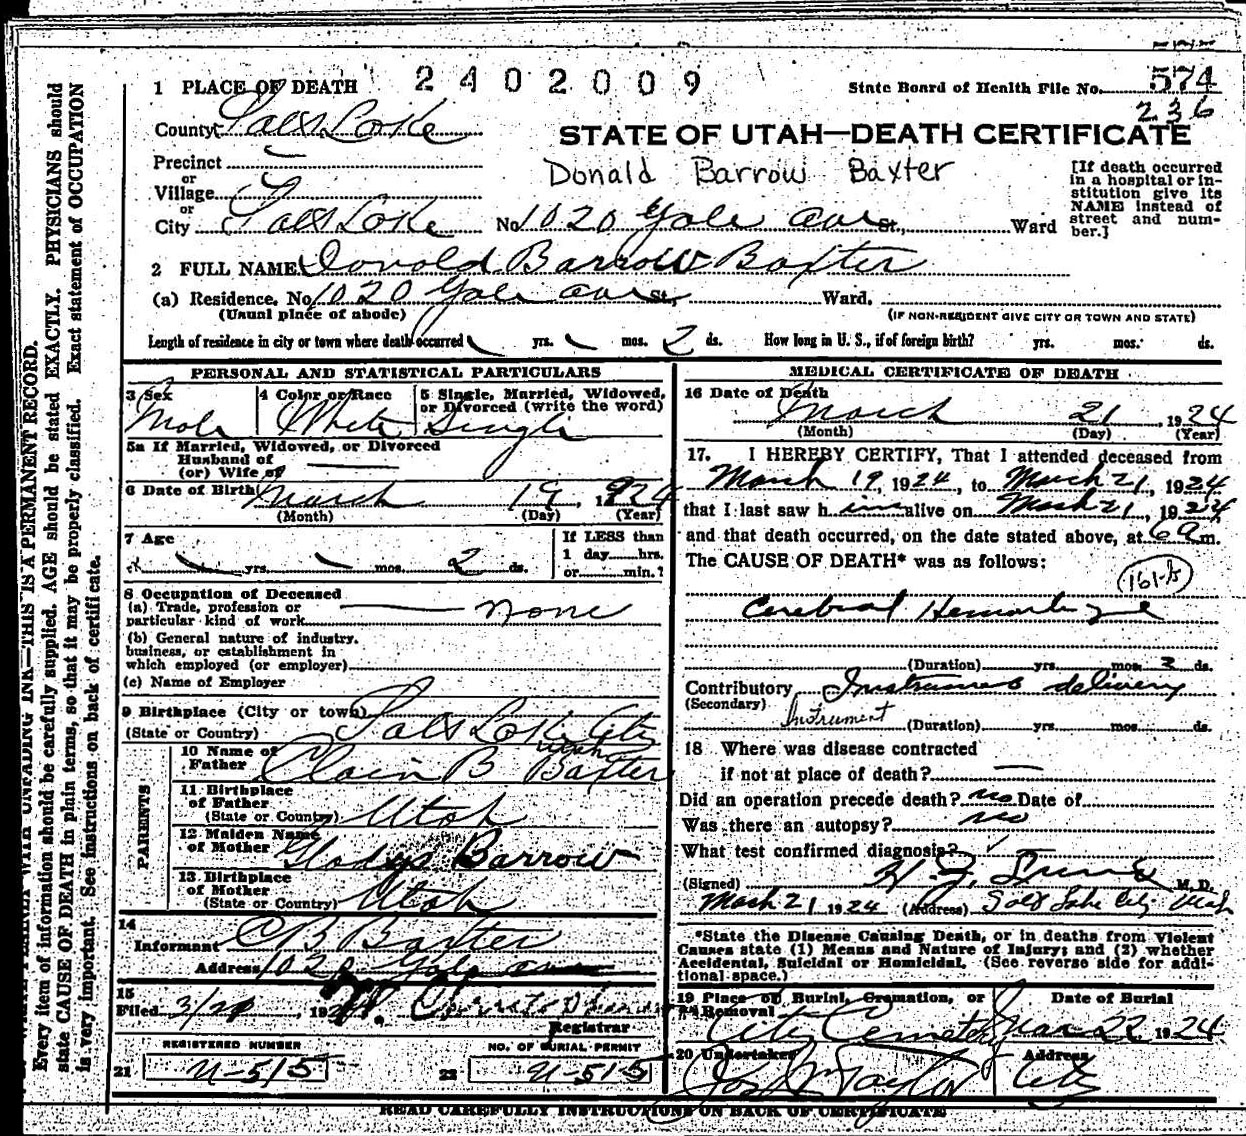 1 PLACE OF DEATH 2402009 State Board of Health File No. 574
236
County Salt Lake
STATE OF UTAH—DEATH CERTIFICATE
Precinct
or
Village
or
City Salt Lake No. 1020 Yale ave St., Ward
Donald Barrow Baxter
[If death occurred in a hospital or in-
stitution give its
NAME instead of
street and num-
ber.]
2 FULL NAME Donald Barrow Baxter
(a) Residence. No. 1020 Yale ave St., Ward.
(Usual place of abode) (IF NON-RESIDENT GIVE CITY OR TOWN AND STATE)
Length of residence in city or town where death occurred yrs. mos. 2 ds. How long in U. S., if of foreign birth? yrs. mos. ds.
PERSONAL AND STATISTICAL PARTICULARS
3 Sex 4 Color or Race 5 Single, Married, Widowed, or Divorced (write the word)
Male White Single
5a If Married, Widowed, or Divorced
Husband of
(or) Wife of
6 Date of Birth March 19, 1924
(Month) (Day) (Year)
7 Age yrs. mos. 2 ds.
If LESS than
1 day hrs.
or min.?
8 Occupation of Deceased
(a) Trade, profession or
particular kind of work none
(b) General nature of industry,
business, or establishment in
which employed (or employer)
(c) Name of Employer
9 Birthplace (City or town) Salt Lake City
(State or Country) Utah
PARENTS
10 Name of
Father Clain B Baxter
11 Birthplace
of Father
(State or Country) Utah
12 Maiden Name
of Mother Gladys Barrow
13 Birthplace
of Mother
(State or Country) Utah
14
Informant C B Baxter
Address 1020 Yale ave
15
Filed 3/21, 192
Registrar
REGISTERED NUMBER NO. OF BURIAL PERMIT
21 U-515 22 U-515
MEDICAL CERTIFICATE OF DEATH
16 Date of Death
March 21, 1924
(Month) (Day) (Year)
17. I HEREBY CERTIFY, That I attended deceased from
March 19, 1924, to March 21, 1924
that I last saw him alive on March 21, 1924
and that death occurred, on the date stated above, at 6 a m.
The CAUSE OF DEATH* was as follows:
161-b
Cerebral Hemorrhage
(Duration) yrs. mos. 2 ds.
Contributory Instrument delivery
(Secondary) Instrument
(Duration) yrs. mos. ds.
18 Where was disease contracted
if not at place of death?
Did an operation precede death? no Date of
Was there an autopsy? no
What test confirmed diagnosis?
(Signed) M. D.
March 21, 1924 (Address) Salt Lake City Utah
*State the Disease Causing Death, or in deaths from Violent
Causes, state (1) Means and Nature of Injury; and (2) whether
Accidental, Suicidal or Homicidal. (See reverse side for addi-
tional space.)
19 Place of Burial, Cremation, or Date of Burial
Removal
City Cemetery Mar 22 1924
20 Undertaker Address
Jos Wm Taylor City
READ CAREFULLY INSTRUCTIONS ON BACK OF CERTIFICATE
WITH UNFADING INK—THIS IS A PERMANENT RECORD.
Every item of information should be carefully supplied. AGE should be stated EXACTLY. PHYSICIANS should
state CAUSE OF DEATH in plain terms, so that it may be properly classified. Exact statement of OCCUPATION
is very important. See instructions on back of certificate.